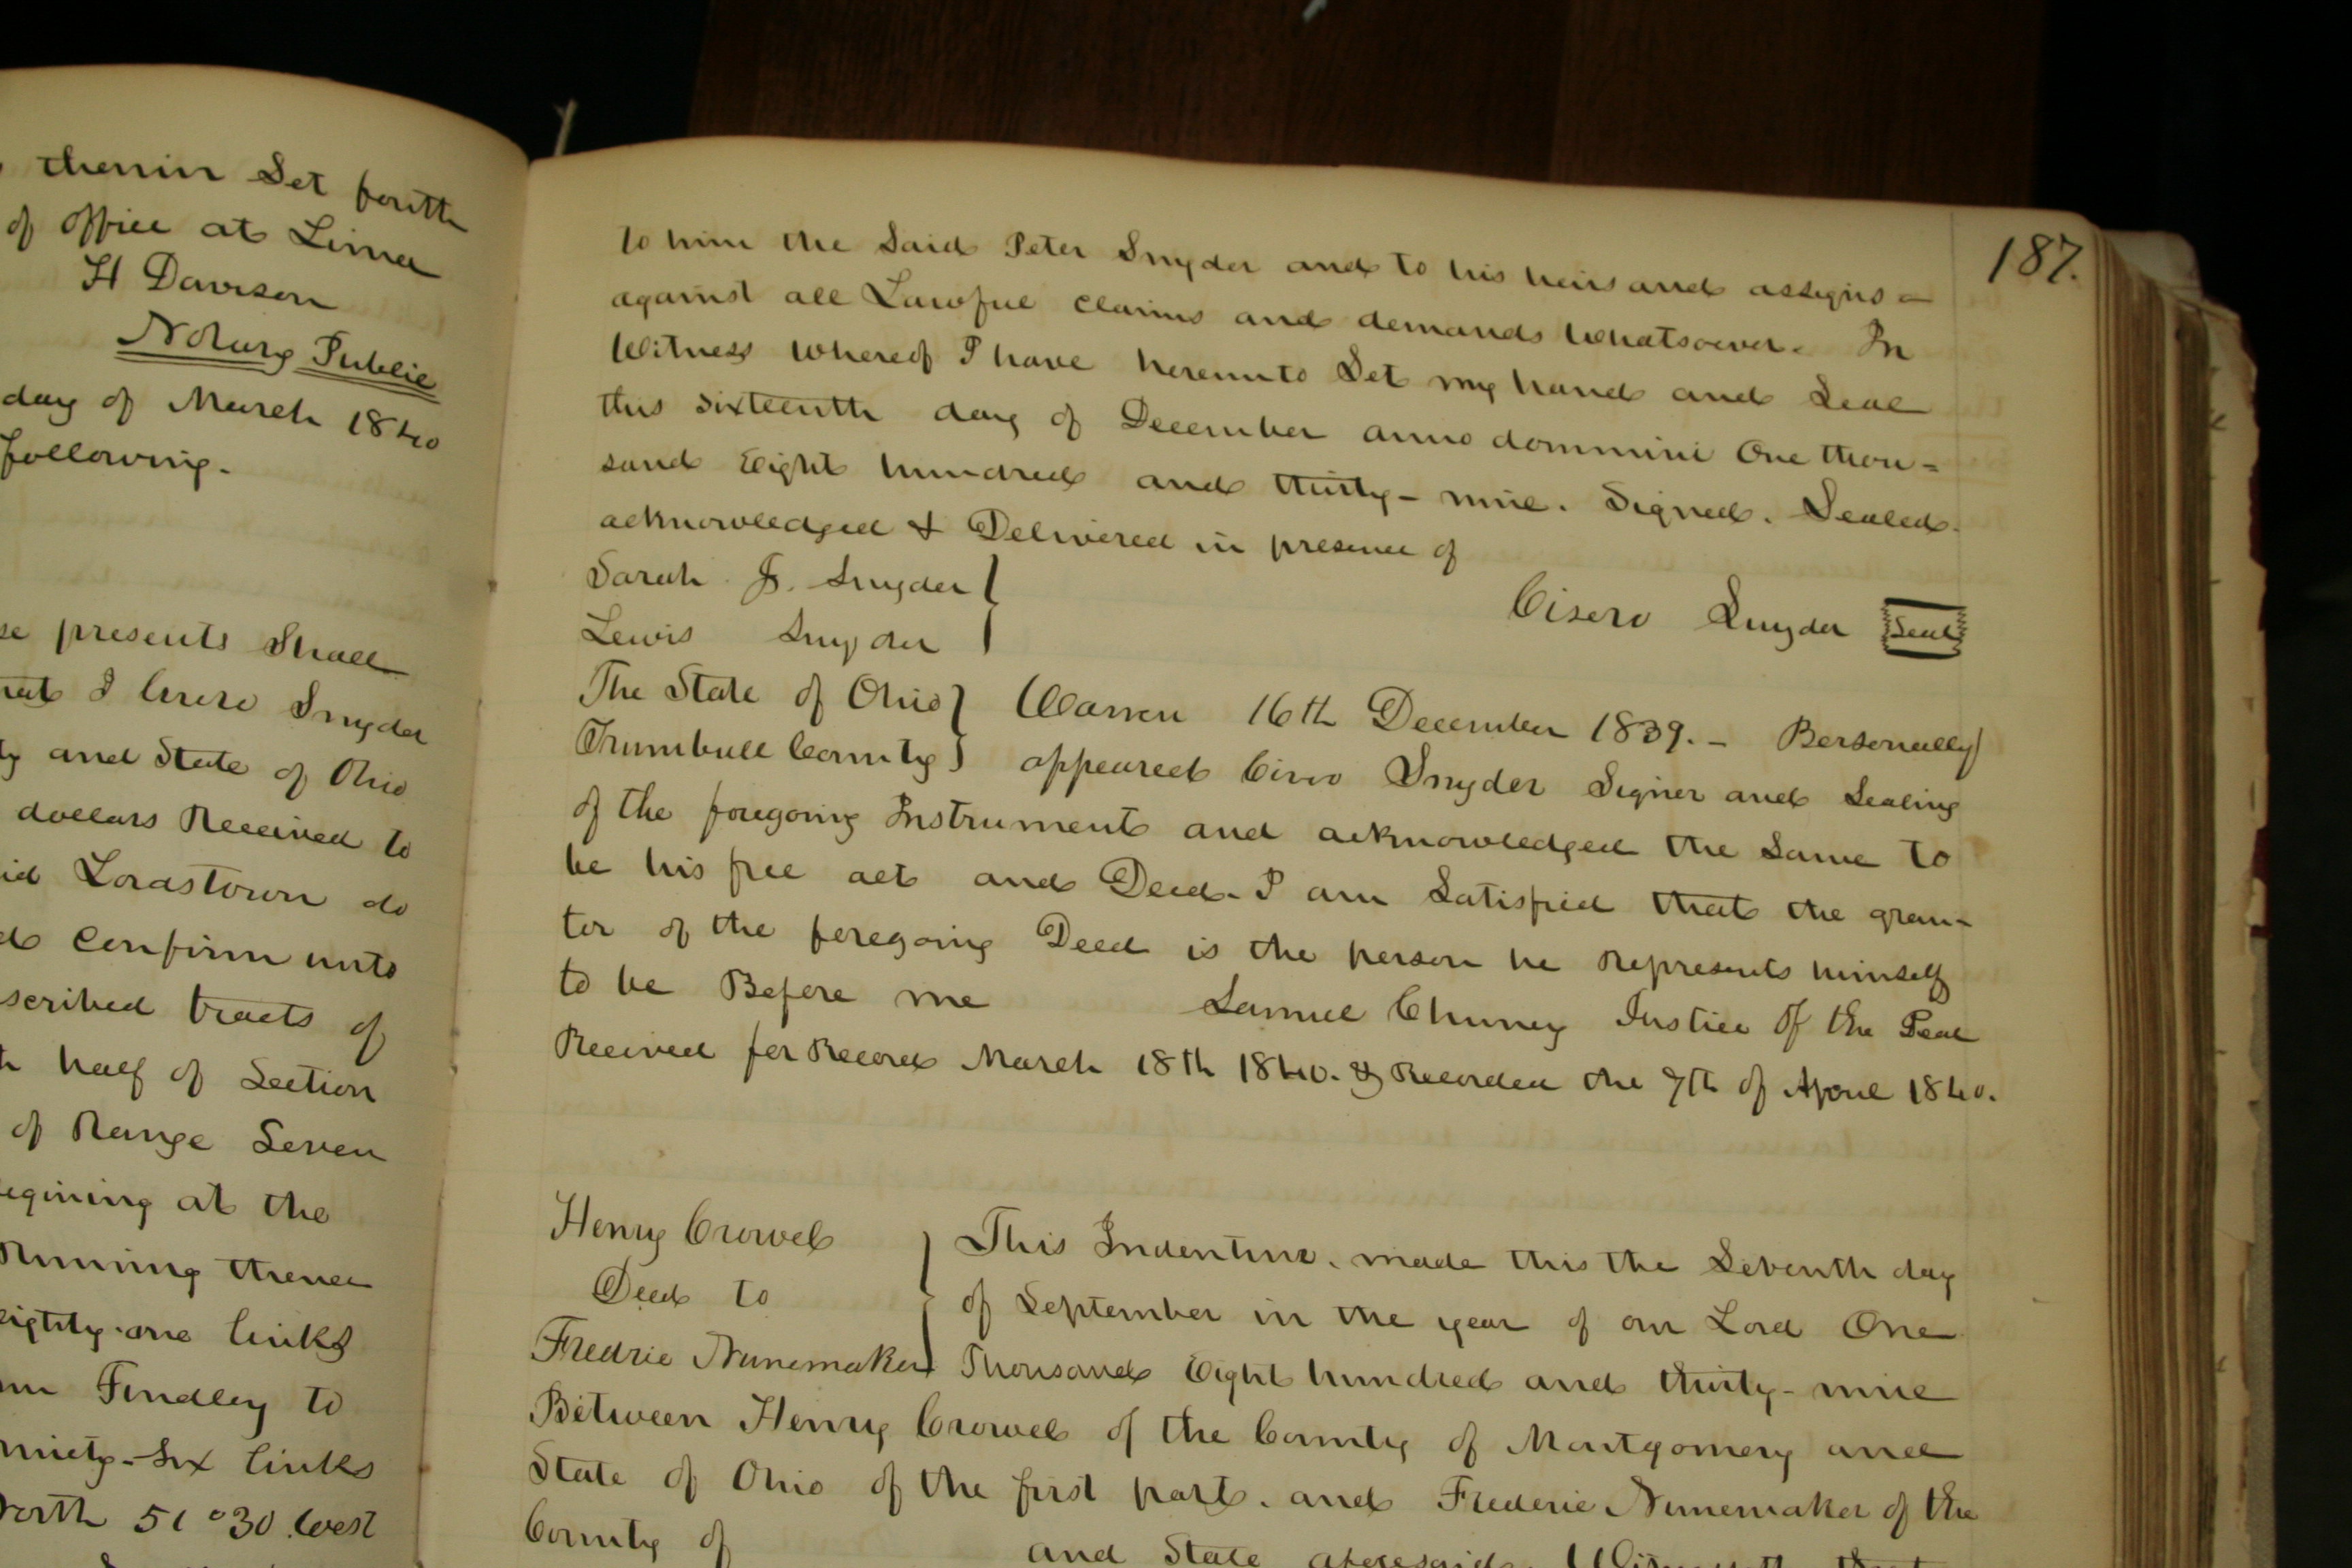 therin Set fourth
of office at Lima
H Davison
Notary Public
day of March 1840
following.
presents Shall
I Cisero Snyder
and State of Ohio
dollars Received to
Lordstown do
confirm unto
scribed tracts of
half of Section
of Range Seven
egining at the
Running thence
eighty-one links
Findley to
ninety-six links
North 51°30 West
187.
to him the Said Peter Snyder and to his heirs and assigns -
against all Lawful claims and demands whatsoever. In
Witness whereof I have hereunto Set my hand and Seal
this sixteenth day of December anno dommini One thou-
sand Eight hundred and thirty-nine. Signed. Sealed.
acknowledged & Delivered in presence of
Sarah J. Snyder
Lewis Snyder
Cisero Snyder Seal
The State of Ohio } Warren 16th December 1839. - Personally
Trumbull County } appeared Cisero Snyder Signer and Sealing
of the foregoing Instrument and acknowledged the Same to
be his free act and Deed. I am Satisfied that the gran-
tor of the foregoing Deed is the person he Represents himself
to be Before me Samuel Chuney Justice Of the Peac
Received for Record March 18th 1840. & Recorded the 7th of April 1840.
Henry Crowel } This Indenture. made this the Seventh day
Deed to } of September in the year of our Lord One
Fredric Nunemaker } Thousand Eight hundred and thirty-nine
Between Henry Crowel of the County of Montgomery and
State of Ohio of the first part. and Frederic Nunemaker of the
County of and State aforesaid. Witnesseth that